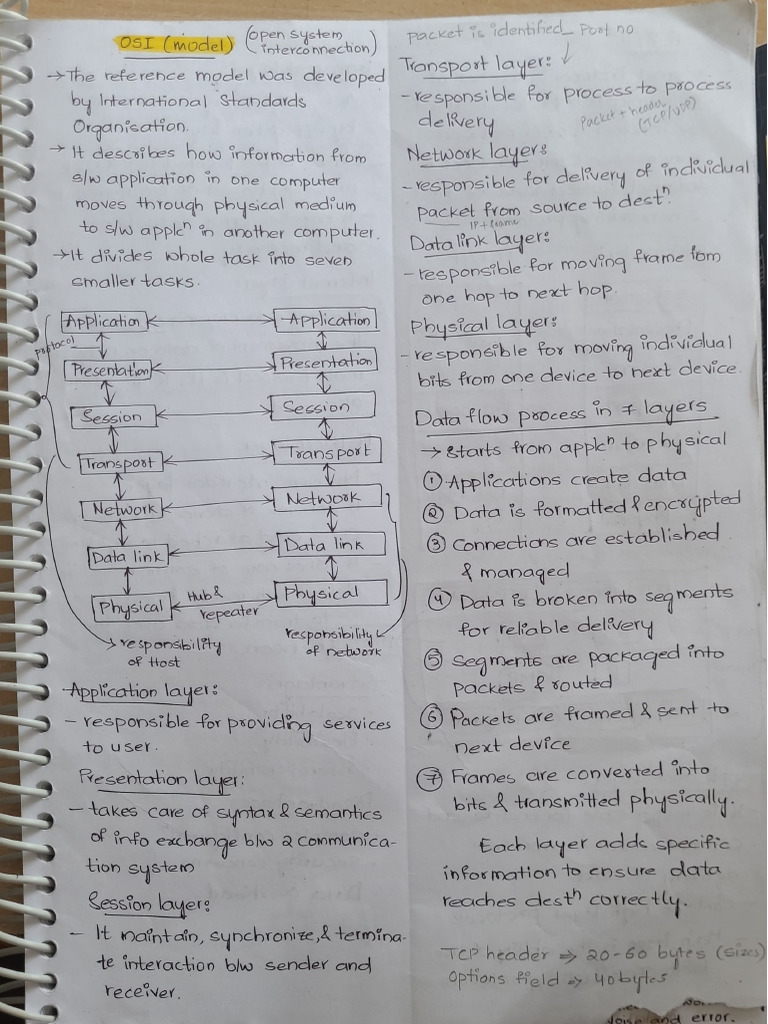 OSI (model) (open system interconnection)
→ The reference model was developed
by International Standards
Organisation.
→ It describes how information from
s/w application in one computer
moves through physical medium
to s/w applcⁿ in another computer.
→ It divides whole task into seven
smaller tasks.
Application Application
protocol
Presentation Presentation
Session Session
Transport Transport
Network Network
Data link Data link
Physical Hub & repeater Physical
responsibility of Host
responsibility of network
Application layer:
- responsible for providing services
to user.
Presentation layer:
- takes care of syntax & semantics
of info exchange b/w 2 communica-
tion system
Session layer:
- It maintain, synchronize, & termina-
te interaction b/w sender and
receiver.
packet is identified_ Port no
Transport layer:
- responsible for process to process
delivery
Packet + header
(TCP/UDP)
Network layer:
- responsible for delivery of individual
packet from source to destⁿ.
IP + frame
Data link layer:
- responsible for moving frame fom
one hop to next hop.
Physical layer:
- responsible for moving individual
bits from one device to next device.
Data flow process in 7 layers
→ starts from applcⁿ to physical
① Applications create data
② Data is formatted & encrypted
③ Connections are established
& managed
④ Data is broken into segments
for reliable delivery
⑤ Segments are packaged into
packets & routed
⑥ Packets are framed & sent to
next device
⑦ Frames are converted into
bits & transmitted physically.
Each layer adds specific
information to ensure data
reaches destⁿ correctly.
TCP header ⇒ 20-60 bytes (sizes)
Options field ⇒ 40 bytes
and error.